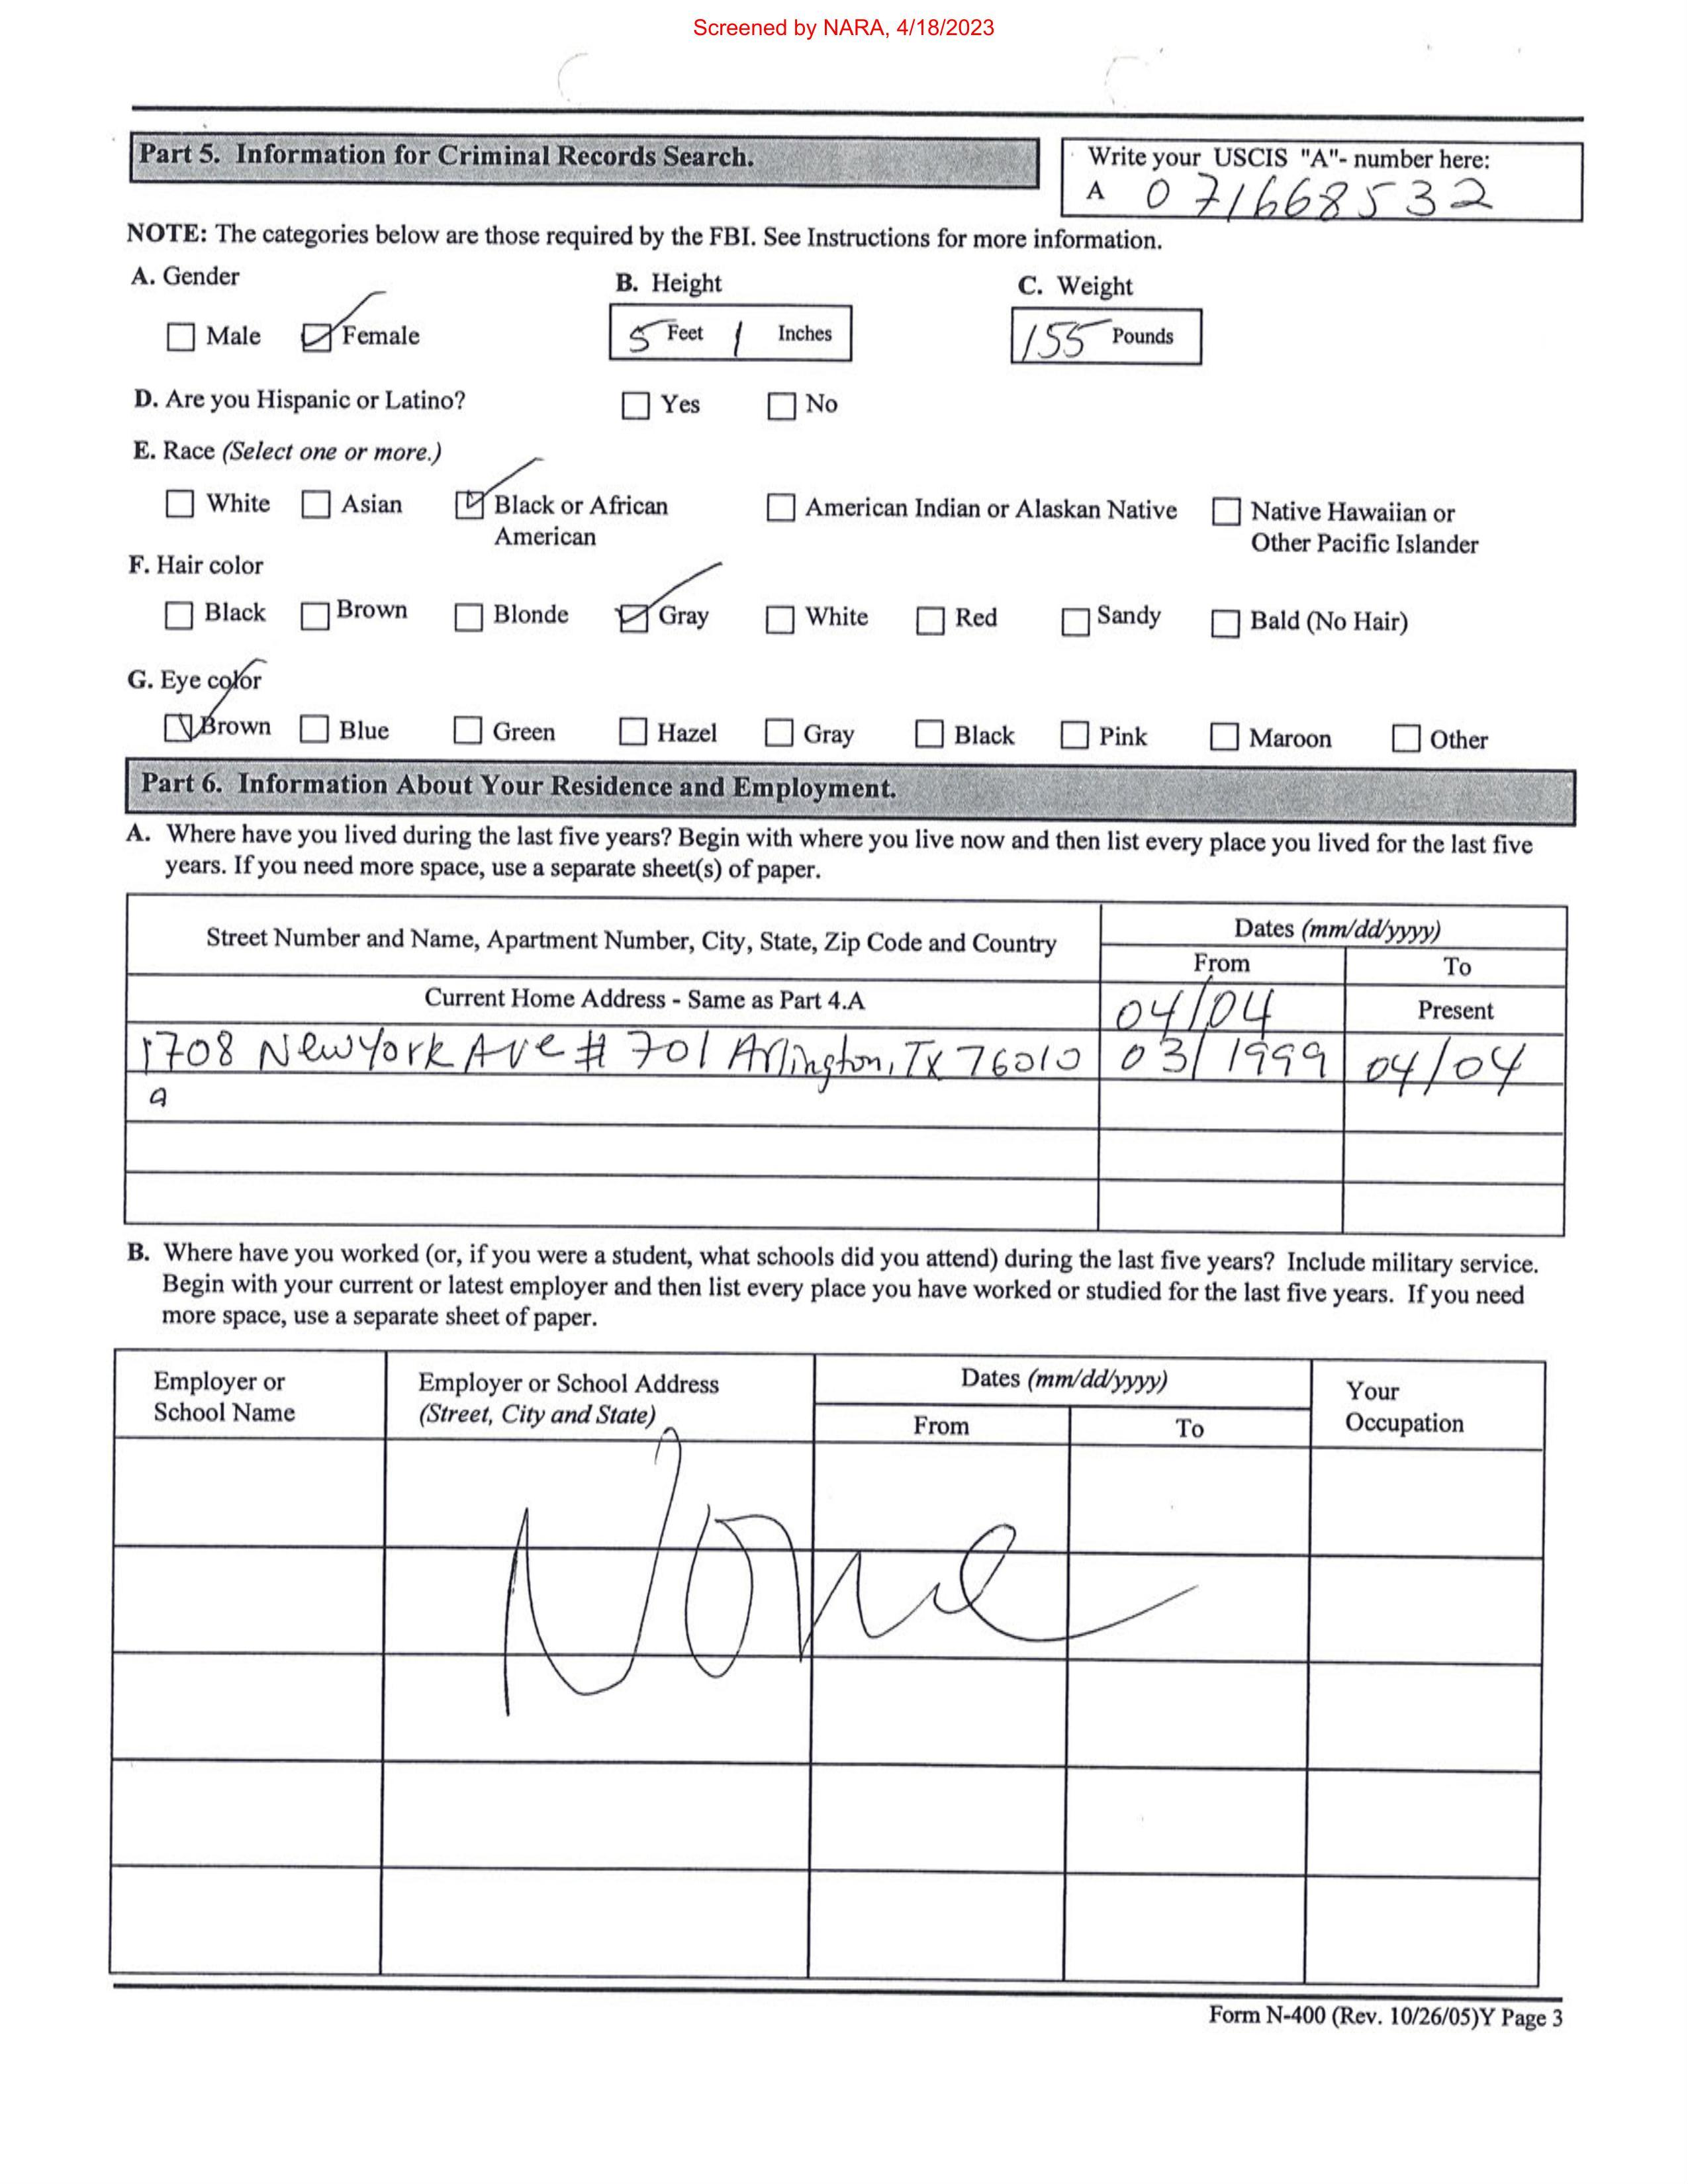 Screened by NARA, 4/18/2023
Part 5. Information for Criminal Records Search.
Write your USCIS "A"- number here:
A 071668532
NOTE: The categories below are those required by the FBI. See Instructions for more information.
A. Gender B. Height C. Weight
Male Female 5 Feet 1 Inches 155 Pounds
D. Are you Hispanic or Latino? Yes No
E. Race (Select one or more.)
White Asian Black or African American American Indian or Alaskan Native Native Hawaiian or Other Pacific Islander
F. Hair color
Black Brown Blonde Gray White Red Sandy Bald (No Hair)
G. Eye color
Brown Blue Green Hazel Gray Black Pink Maroon Other
Part 6. Information About Your Residence and Employment.
A. Where have you lived during the last five years? Begin with where you live now and then list every place you lived for the last five
years. If you need more space, use a separate sheet(s) of paper.
Street Number and Name, Apartment Number, City, State, Zip Code and Country Dates (mm/dd/yyyy)
From To
Current Home Address - Same as Part 4.A 04/04 Present
1708 New York Ave # 701 Arlington, TX 76010 03/1999 04/04
a
B. Where have you worked (or, if you were a student, what schools did you attend) during the last five years? Include military service.
Begin with your current or latest employer and then list every place you have worked or studied for the last five years. If you need
more space, use a separate sheet of paper.
Employer or School Name Employer or School Address (Street, City and State) Dates (mm/dd/yyyy) Your Occupation
From To
None
Form N-400 (Rev. 10/26/05)Y Page 3